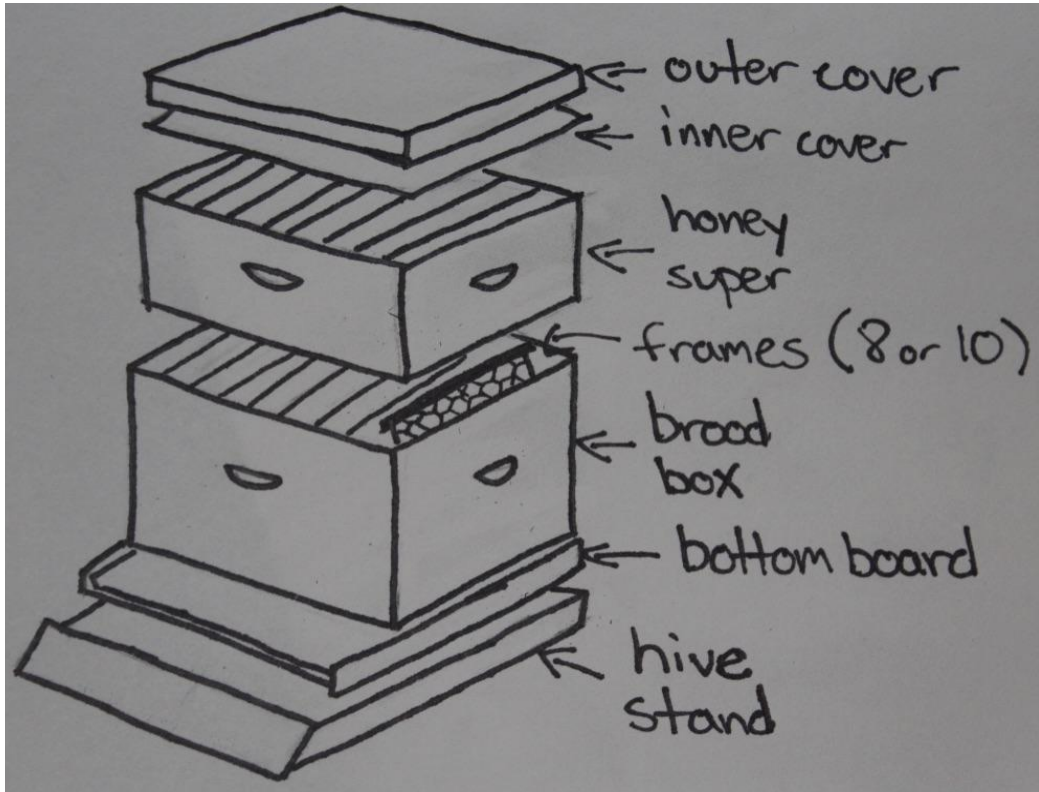 outer cover
inner cover
honey
super
frames (8 or 10)
brood
box
bottom board
hive
stand